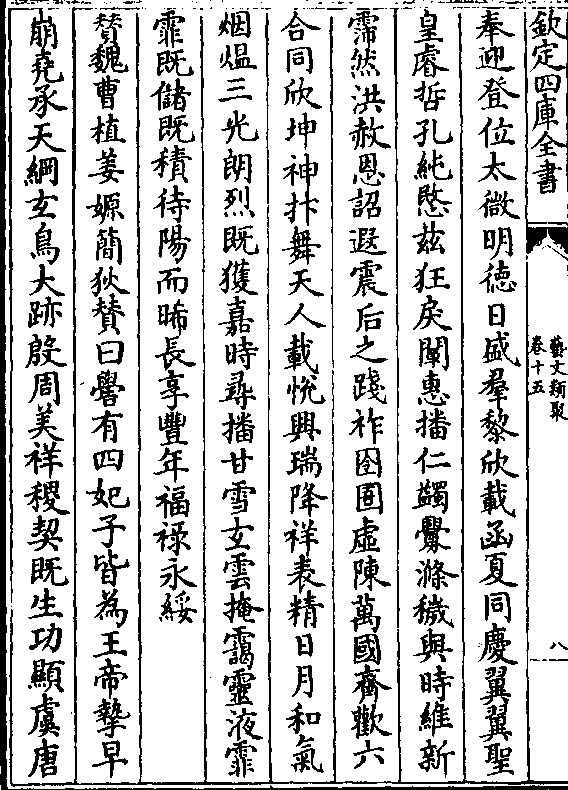 欽定四庫全書
藝文類聚
卷十五
八
奉迎登位太微明徳日盛羣黎欣載函夏同慶翼翼聖
皇睿哲孔純愍兹狂戾闡惠播仁蠲釁滌穢與時維新
霈然洪赦恩詔遐震后之踐祚囹圄虚陳萬國齊歡六
合同欣坤神抃舞天人載悅興瑞降祥表精日月和氣
烟熅三光朗烈既獲嘉時尋播甘雪玄雲掩靄靈液霏
霏既儲既積待陽而晞長享豐年福禄永綏
賛魏曹植姜嫄簡狄賛曰嚳有四妃子皆為王帝摯早
崩堯承天綱玄鳥大跡殷周美祥稷契既生功顯虞唐